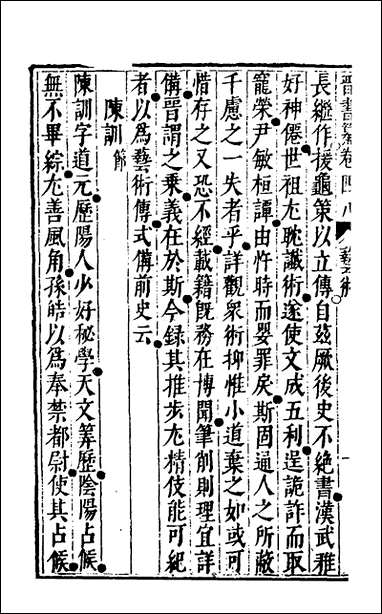 晉書纂卷四八　藝術
長繼作援龜策以立傳自茲厥後史不絕書漢武雅
好神僊世祖尤耽讖術遂使文成五利逞詭詐而取
寵榮尹敏桓譚由忤時而嬰罪戾斯固通人之所蔽
千慮之一失者乎詳觀衆術抑惟小道棄之如或可
惜存之又恐不經載籍旣務在博聞筆削則理宜詳
備晉謂之乗義在於斯今録其推步尤精伎能可紀
者以爲藝術傳式備前史云
陳訓節
陳訓字道元歷陽人少好秘學天文筭歷陰陽占候
無不畢綜尤善風角孫皓以爲奉禁都尉使其占候